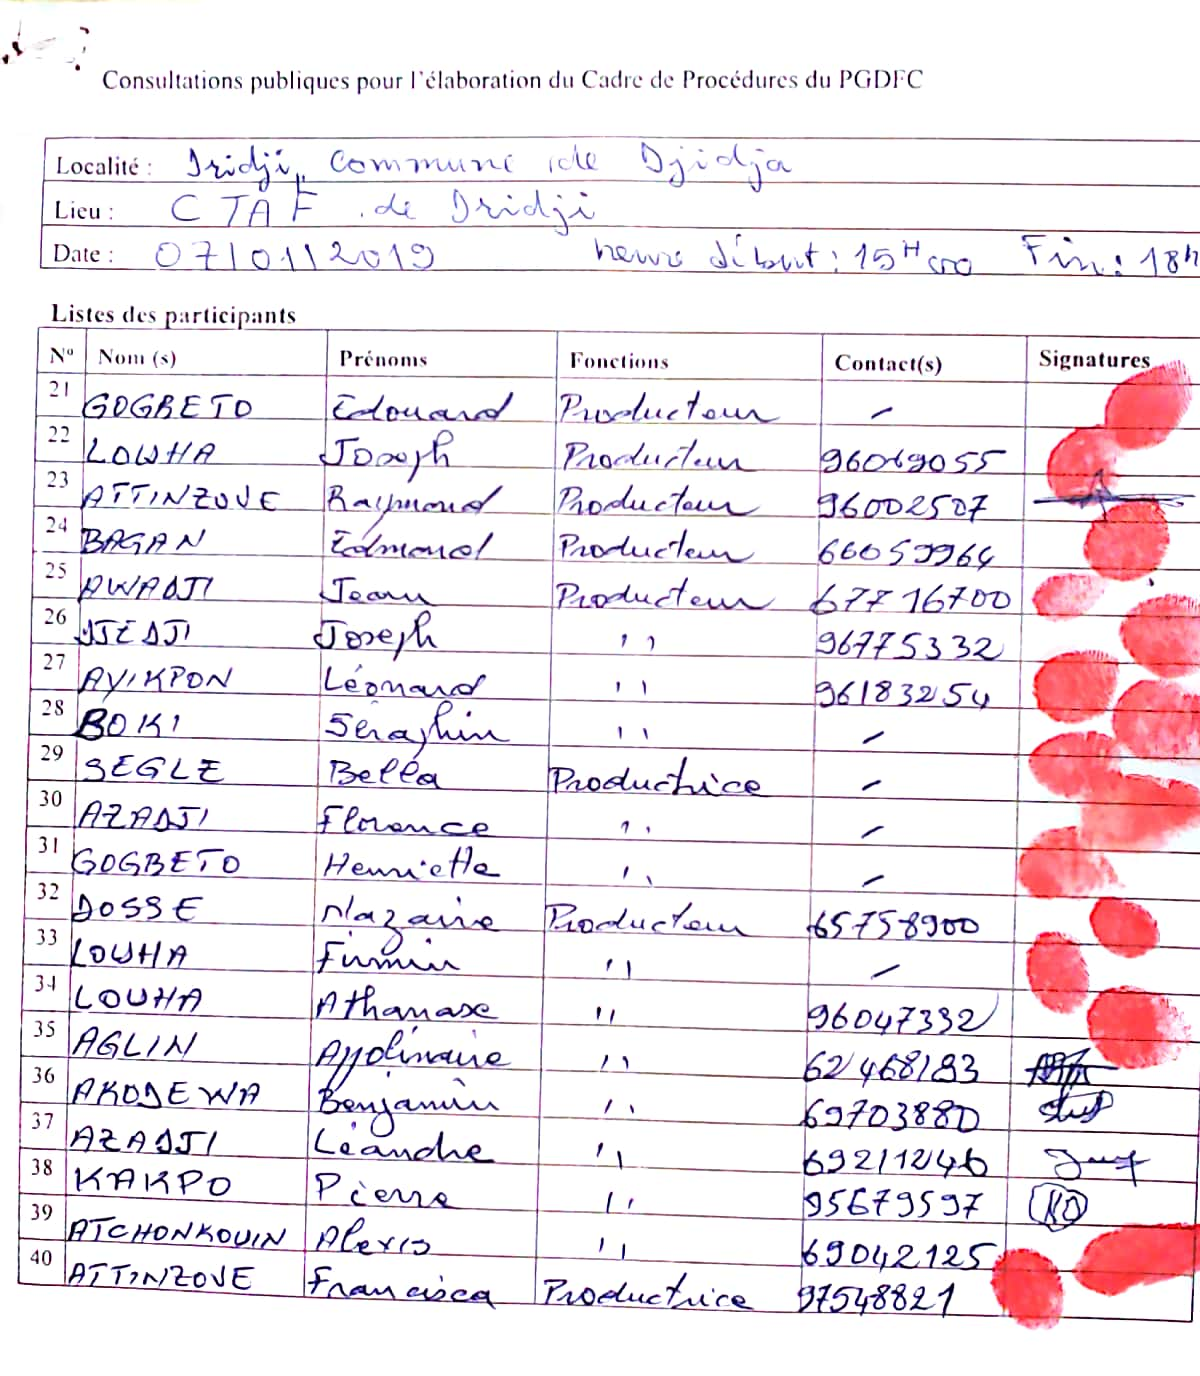 Consultations publiques pour l'élaboration du Cadre de Procédures du PGDFC
Localité : Dridji, Commune de Djidja
Lieu : CTAF de Dridji
Date : 07/01/2019 heure début : 15H00 Fin : 18h
Listes des participants
N° Nom (s) Prénoms Fonctions Contact(s) Signatures
21 GOGBETO Edouard Producteur –
22 LOWHA Joseph Producteur 96069055
23 ATTINZOVE Raymond Producteur 96002507
24 BAGAN Edmond Producteur 66059964
25 AWADJI Jean Producteur 67716700
26 Joseph '' 96775332
27 AYIKPON Léonard '' 96183254
28 BOKI Séraphin '' –
29 SEGLE Bella Productrice –
30 AZADJI Florence '' –
31 GOGBETO Henriette '' –
32 DOSSE Nazaire Producteur 65758900
33 LOWHA Firmin '' –
34 LOUHA Athanase '' 96047332
35 AGLIN Appolinaire '' 62468183
36 AKODEWA Benjamin '' 69703880
37 AZADJI Léandre '' 69211246
38 KAKPO Pierre '' 95679597 KO
39 ATCHONKOUIN Alexis '' 69042125
40 ATTINZOVE Francisca Productrice 97548821